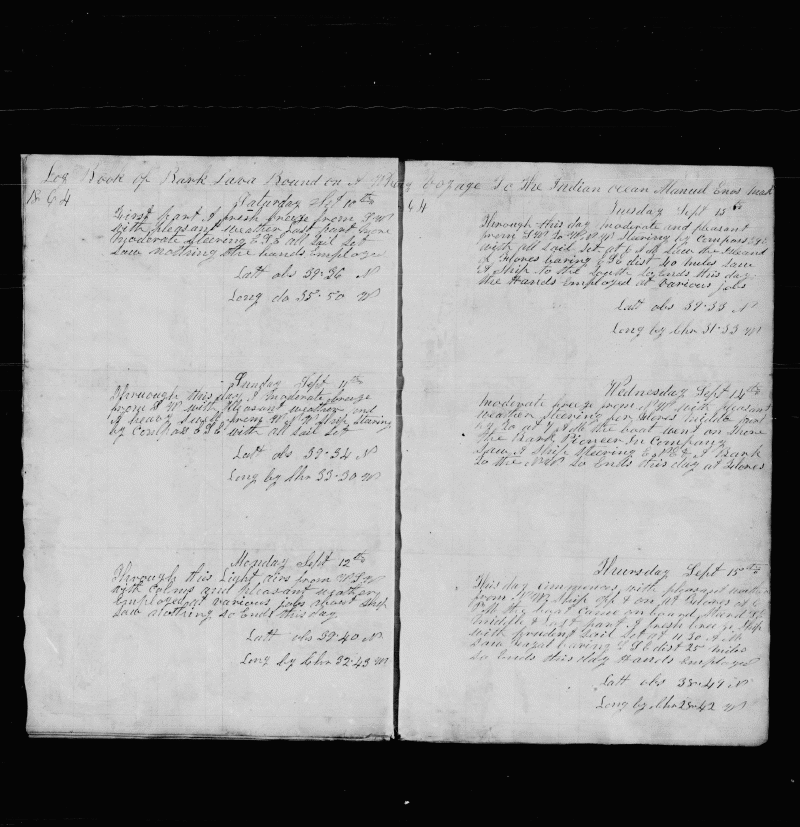 Log Book of Bark Java Bound on A Whaling Voyage To The Indian ocean Manuel Enos Mast
1864
Saturday Sept 10th
First part A fresh breeze from S W
with pleasant weather Last part more
moderate steering E S E all Sail Set
Saw nothing the hands Employed
Latt obs 39-36 N
Long do 35-50 W
Sunday Sept 11th
Through this day A moderate breeze
from S W with pleasant weather and
A heavy Swell from W N W Ship Staring
by Compass E S E with all Sail Set
Latt obs 39-34 N
Long by Chr 33-30 W
Monday Sept 12th
Through this Light airs from W S W
with Calms and pleasant weather
Employed at various jobs about Ship
Saw nothing So Ends this day
Latt obs 39-40 N
Long by Chr 32-43 W
64
Tuesday Sept 13th
Through this day moderate and pleasant
from S W to W S W Staring by Compass
with all Sail Set at 6 Saw the Island
of Flores baring dist 40 miles Saw
A Ship to the South So Ends this day
the Hands Employed at various jobs
Latt obs 39-33 N
Long by Chr 31-33 W
Wednesday Sept 14th
Moderate breeze from S W with pleasant
weather steering for Flores Middle part
at 7 A M the boat went on Shore
the Bark Pioneer In Company
Saw A Ship Steering & A Bark
to the N W So Ends this day at Flores
Thursday Sept 15th
This day commences with pleasant weather
from S W Ship off & on at Flores at 6
P M the boat came on board Stand
Middle & Last part A fresh breeze Ship
with prudent Sail Set at 11 30 A M
Saw Fayal baring E S E dist 25 miles
So Ends this day Hands Employed
Latt obs 38-49 N
Long by Chr 29-42 W